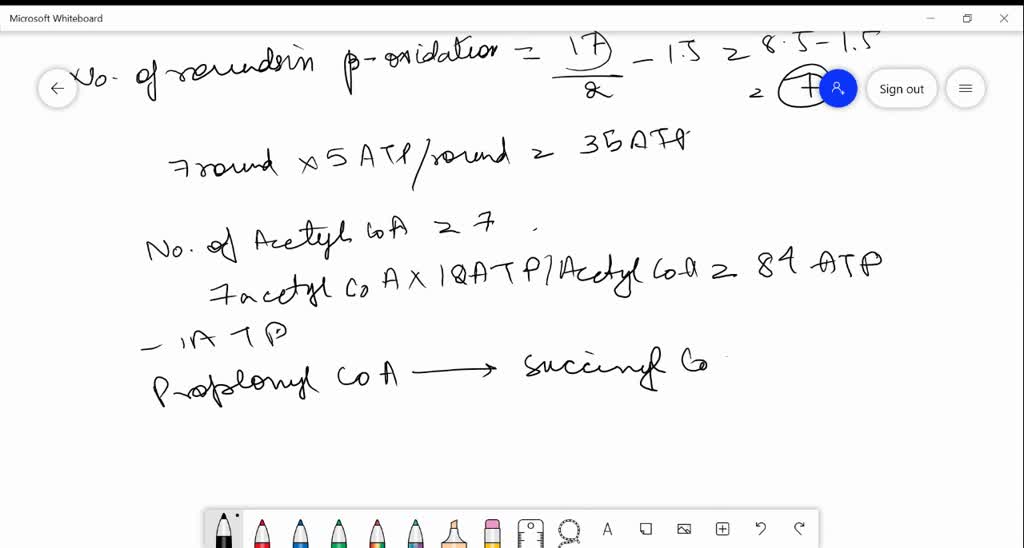 Microsoft Whiteboard
No. of rounds in β-oxidation = 17/2 - 1.5 = 8.5 - 1.5
= 7
Sign out
7 round × 5 ATP/round = 35 ATP
No. of Acetyl CoA = 7.
7 acetyl CoA × 12 ATP/Acetyl CoA = 84 ATP
- 1 ATP
Propionyl CoA → Succinyl Co
A